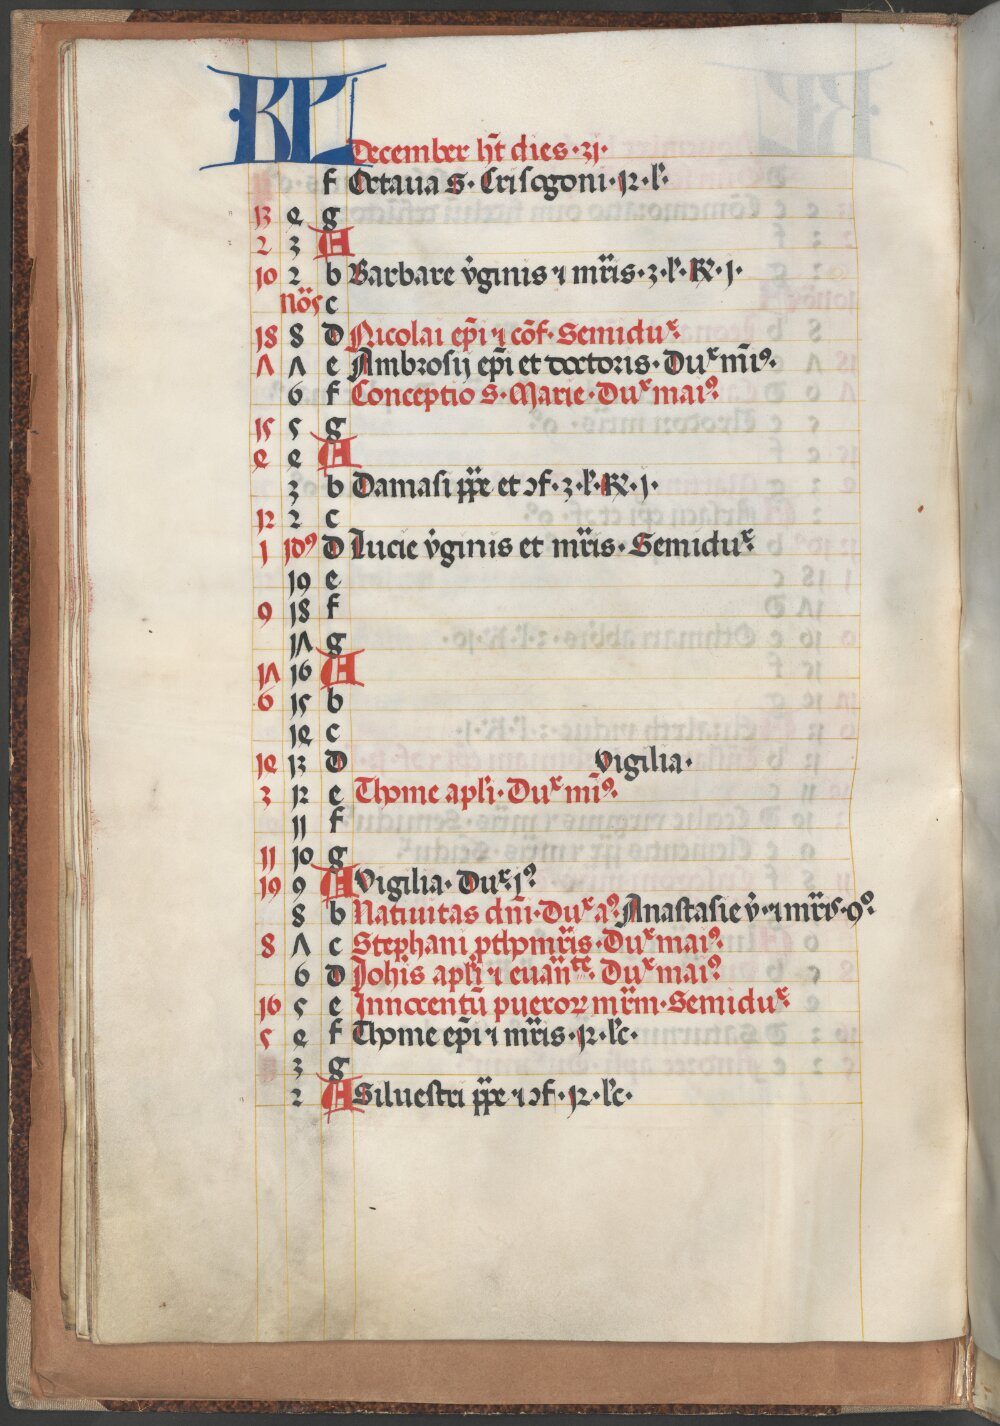 KL
December hr̄t dies · 31 ·
f Octaua S · Crisogoni · 12 · l' ·
13 e g
2 3 A
10 2 b Barbare v̄ginis ⁊ mr̄is · 3 · l' · R' · 1 ·
nōs c
18 8 d Nicolai ep̄i ⁊ cōf · Semidux ·
7 7 e Ambrosij ep̄i et doctoris · Dux mī9 ·
6 f Conceptio S · Marie · Dux mai9 ·
15 5 g
4 4 A
3 b Damasi pp̄e et ɔf · 3 · l' · R' · 1 ·
12 2 c
1 id9 d Lucie v̄ginis et mr̄is · Semidux ·
19 e
9 18 f
17 g
17 16 A
6 15 b
14 c
14 13 d Vigilia ·
3 12 e Thome apl'i · Dux mī9 ·
11 f
11 10 g
19 9 A Vigilia · Dux · 19
8 b Natiuitas dn̄i · Dux a9 · Anastasie v̄ · ⁊ mr̄is · 9o ·
8 7 c Stephani pthomr̄is · Dux mai9 ·
6 d Joh̄is apl'i ⁊ euan̄te · Dux mai9 ·
16 5 e Innocentū pueroꝝ mr̄m · Semidux
5 4 f Thome ep̄i ⁊ mr̄is · 12 · l'c ·
3 g
2 A Siluestri pp̄e ⁊ ɔf · 12 · l'c ·